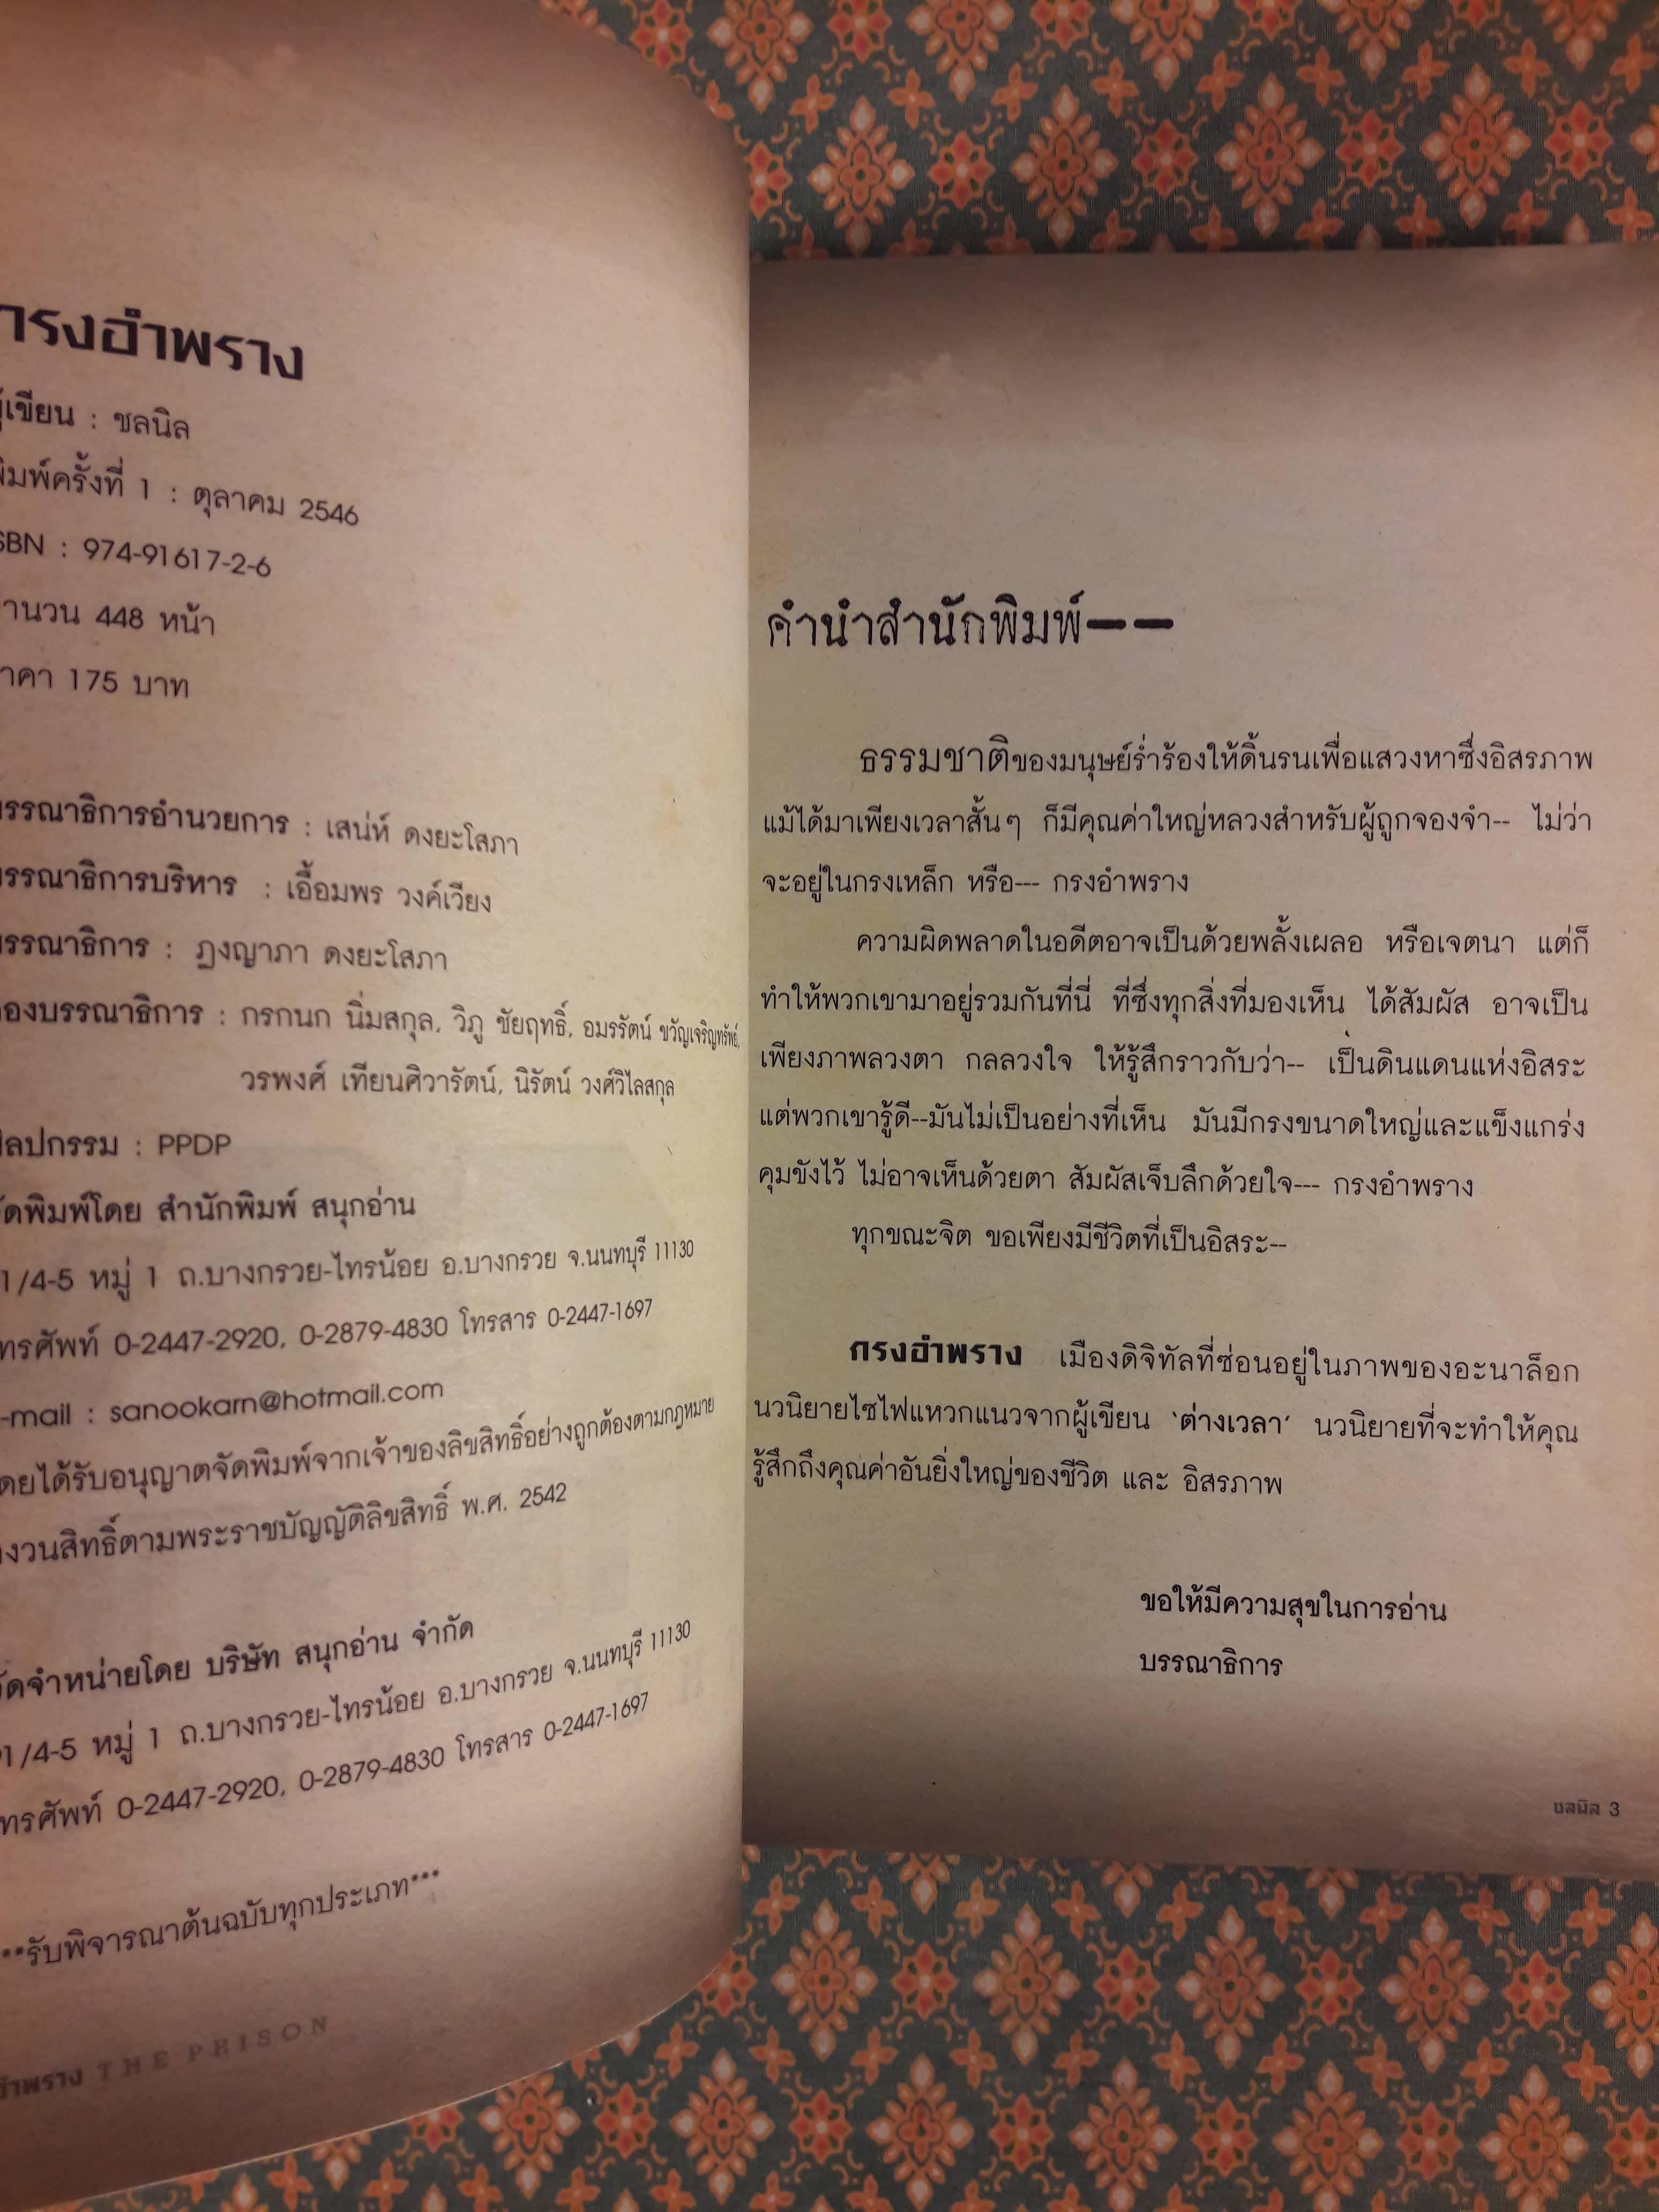 กรงอำพราง
ผู้เขียน : ชลนิล
พิมพ์ครั้งที่ 1 : ตุลาคม 2546
ISBN : 974-91617-2-6
จำนวน 448 หน้า
ราคา 175 บาท
บรรณาธิการอำนวยการ : เสน่ห์ ดงยะโสภา
บรรณาธิการบริหาร : เอื้อมพร วงค์เวียง
บรรณาธิการ : ฎงญาภา ดงยะโสภา
กองบรรณาธิการ : กรกนก นิ่มสกุล, วิภู ชัยฤทธิ์, อมรรัตน์ ขวัญเจริญทรัพย์,
วรพงศ์ เทียนศิวารัตน์, นิรัตน์ วงศ์วิไลสกุล
ศิลปกรรม : PPDP
จัดพิมพ์โดย สำนักพิมพ์ สนุกอ่าน
1/4-5 หมู่ 1 ถ.บางกรวย-ไทรน้อย อ.บางกรวย จ.นนทบุรี 11130
โทรศัพท์ 0-2447-2920, 0-2879-4830 โทรสาร 0-2447-1697
e-mail : sanookarn@hotmail.com
โดยได้รับอนุญาตจัดพิมพ์จากเจ้าของลิขสิทธิ์อย่างถูกต้องตามกฎหมาย
สงวนสิทธิ์ตามพระราชบัญญัติลิขสิทธิ์ พ.ศ. 2542
จัดจำหน่ายโดย บริษัท สนุกอ่าน จำกัด
91/4-5 หมู่ 1 ถ.บางกรวย-ไทรน้อย อ.บางกรวย จ.นนทบุรี 11130
โทรศัพท์ 0-2447-2920, 0-2879-4830 โทรสาร 0-2447-1697
***รับพิจารณาต้นฉบับทุกประเภท***
อำพราง THE PRISON
คำนำสำนักพิมพ์--
ธรรมชาติของมนุษย์ร่ำร้องให้ดิ้นรนเพื่อแสวงหาซึ่งอิสรภาพ
แม้ได้มาเพียงเวลาสั้นๆ ก็มีคุณค่าใหญ่หลวงสำหรับผู้ถูกจองจำ-- ไม่ว่า
จะอยู่ในกรงเหล็ก หรือ--- กรงอำพราง
ความผิดพลาดในอดีตอาจเป็นด้วยพลั้งเผลอ หรือเจตนา แต่ก็
ทำให้พวกเขามาอยู่รวมกันที่นี่ ที่ซึ่งทุกสิ่งที่มองเห็น ได้สัมผัส อาจเป็น
เพียงภาพลวงตา กลลวงใจ ให้รู้สึกราวกับว่า-- เป็นดินแดนแห่งอิสระ
แต่พวกเขารู้ดี--มันไม่เป็นอย่างที่เห็น มันมีกรงขนาดใหญ่และแข็งแกร่ง
คุมขังไว้ ไม่อาจเห็นด้วยตา สัมผัสเจ็บลึกด้วยใจ--- กรงอำพราง
ทุกขณะจิต ขอเพียงมีชีวิตที่เป็นอิสระ--
กรงอำพราง เมืองดิจิทัลที่ซ่อนอยู่ในภาพของอะนาล็อก
นวนิยายไซไฟแหวกแนวจากผู้เขียน 'ต่างเวลา' นวนิยายที่จะทำให้คุณ
รู้สึกถึงคุณค่าอันยิ่งใหญ่ของชีวิต และ อิสรภาพ
ขอให้มีความสุขในการอ่าน
บรรณาธิการ
ชลนิล 3